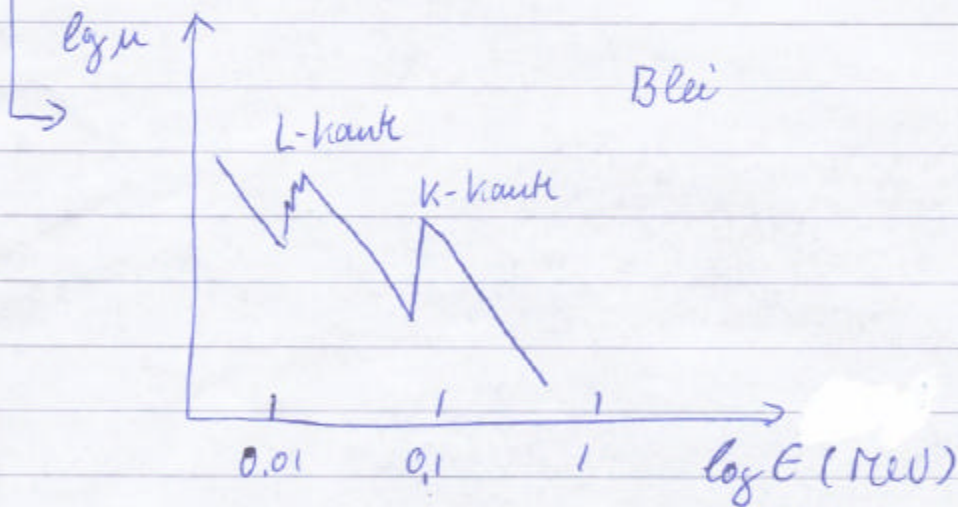 lg μ
Blei
L-Kante
K-Kante
0.01 0,1 1 log E (MeV)